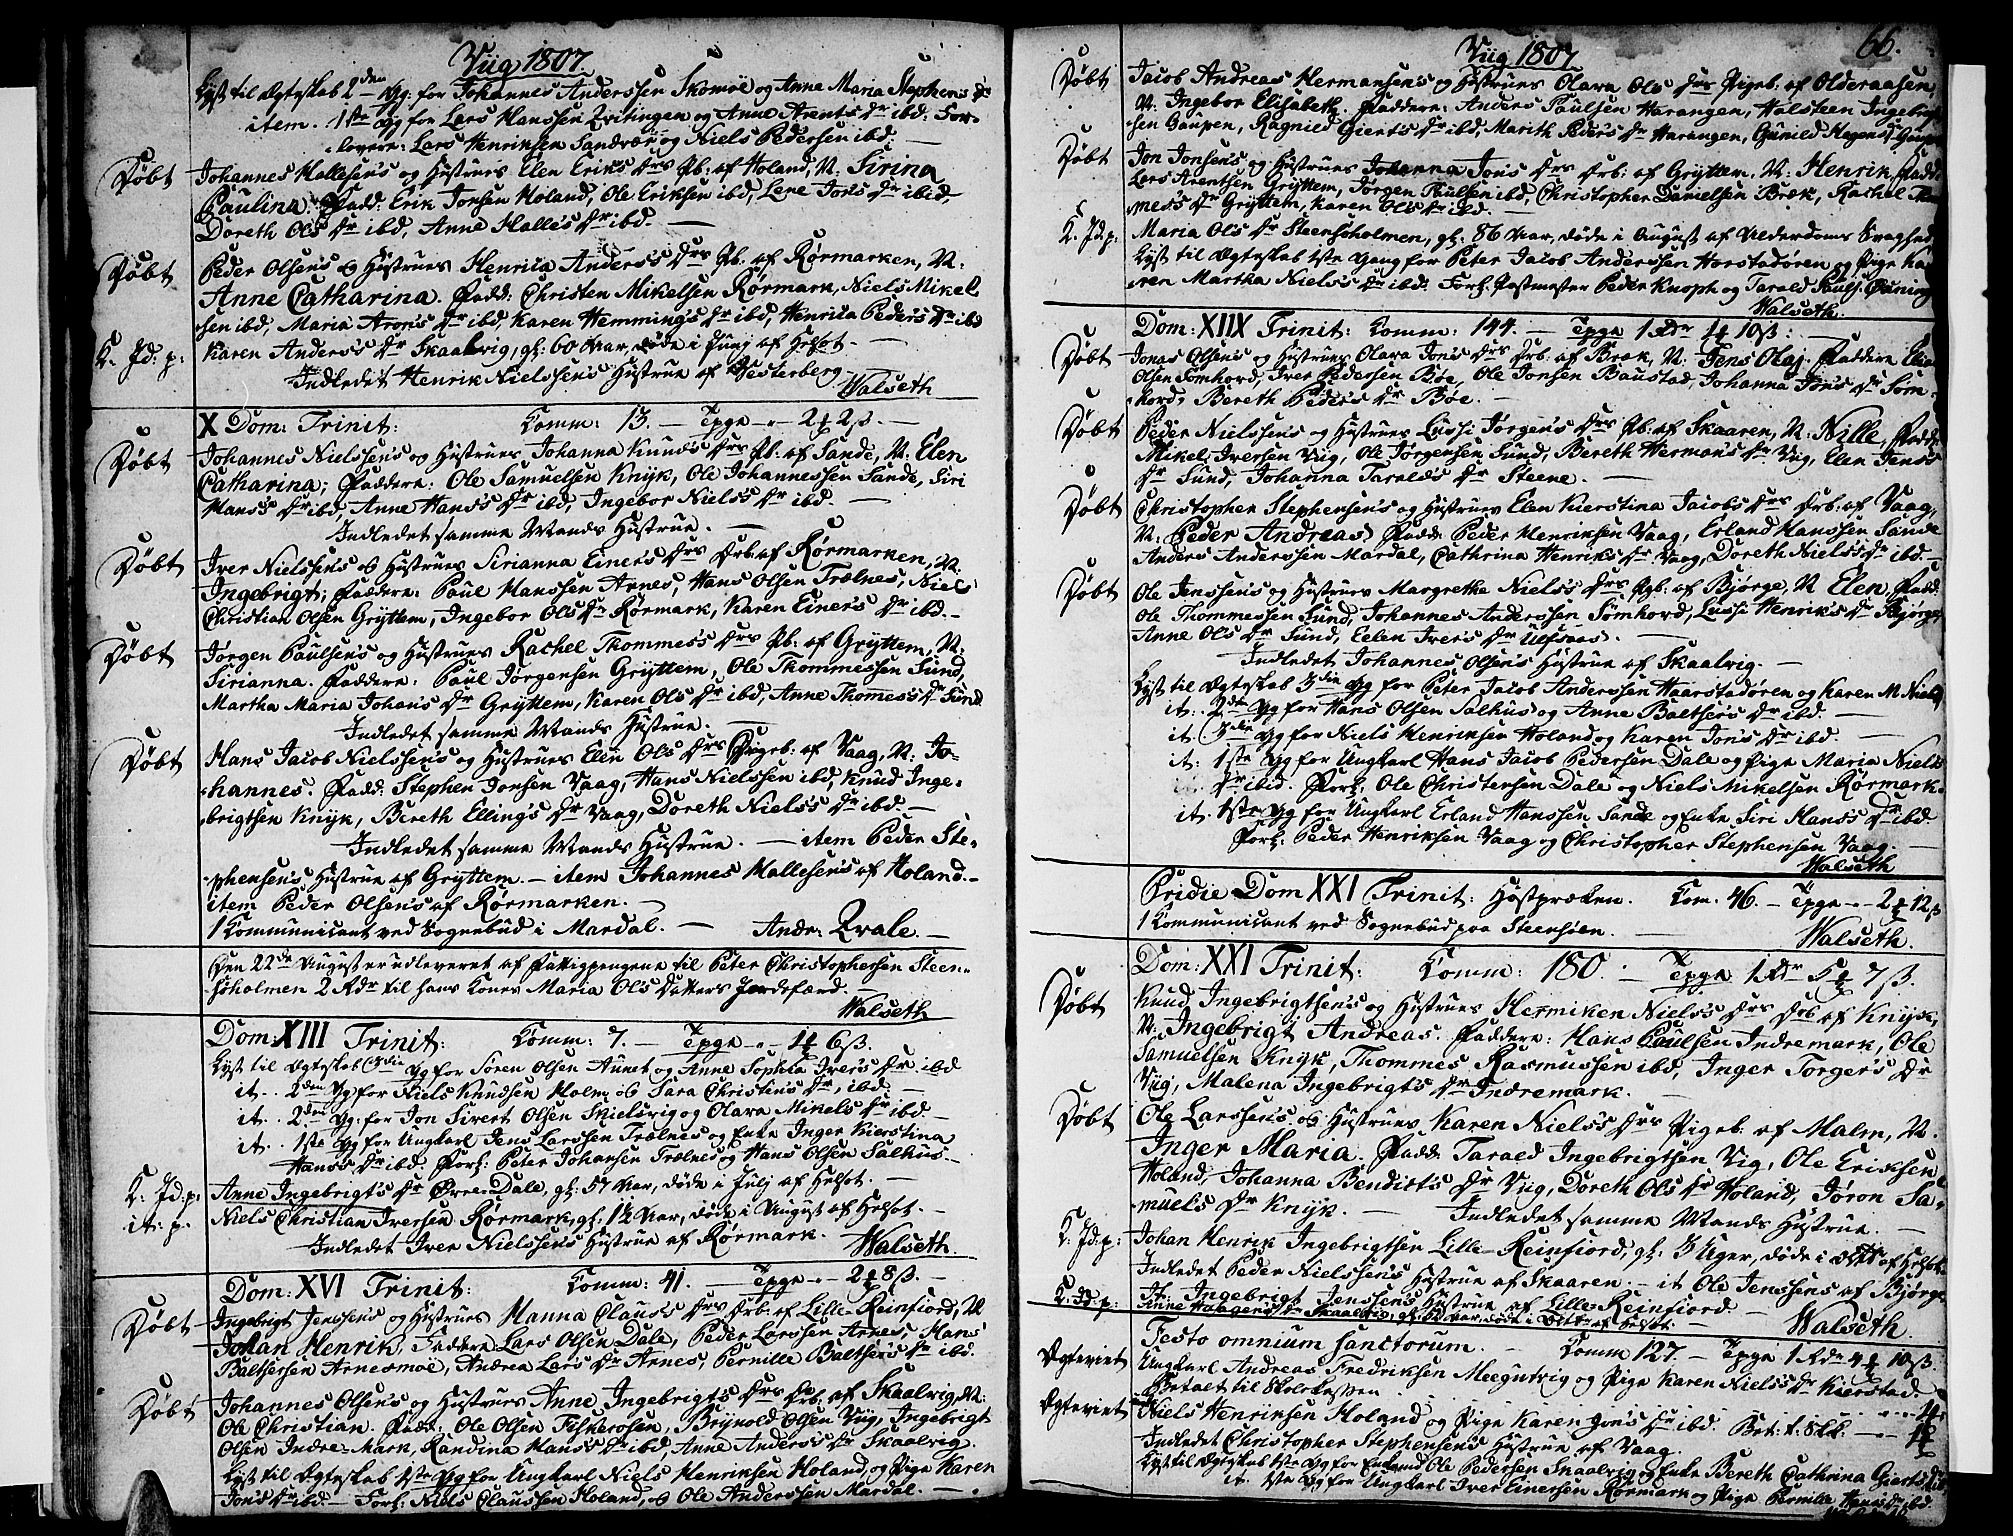 Viig 1807.
Lyst til Ægteskab 2den Gg. for Johannes Anderssen Skomoe og Anne Maria Stephens Dr
item. 1ste Gg for Lars Hanssen Zvitingen og Anne Arents Dr ibd. For-
lovere: Lars Henriksen Sandvær og Niels Pedersen ibd. —
Døbt Johannes Hallesen's og Hustrues Elen Eriks Drs Pb: af Holand, N: Sirina
Paulina. Fadd: Erik Jonsen Holand, Ole Eriksen ibd, Lene Jons Dr ibid,
Doreth Ols Dr ibd, Anne Halles Dr ibd. —
Døbt Peder Olsens & Hustrues Henrica Anders's Drs Pb. af Rørmarken, N:
Anne Catharina. Fadd: Christen Mikelsen Rørmark, Niels Mikel
sen ibd, Maria Arons Dr ibd, Karen Hemmings Dr ibd, Henrica Peders Dr ibd
K. Jd: p: Karen Anders's Dr Skaalvig, gl: 60 Aar, døde i Junj af Helsot. —
Indledet Henrik Nielssens Hustrue af Vesterberg
Walseth
X Dom: Trinit: Komm: 13. — Tpge " - 2 ₶ 2 ß. —
Døbt Johannes Nielssens og Hustrues Johanna Knuds Drs Pb: af Sande, N: Elen
Catharina; Faddere: Ole Samuelsen Knyk, Ole Johannessen Sande, Siri
Hans's Dr ibd, Anne Hans's Dr ibd, Ingebor Niels's Dr ibd. —
Indledet samme Mands Hustrue. —
Døbt Iver Nielssens & Hustrues Sirianna Einers Drs Drb: af Rørmarken, N:
Ingebrigt; Faddere: Poul Hanssen Arnes, Hans Olsen Trælnes, Niels
Christian Olsen Gryttem, Ingebor Ols Dr Rørmark, Karen Einer's Dr ibd. —
Døbt Jørgen Paulsens og Hustrues Rachel Thommess Drs Pb. af Gryttem, N:
Sirianna. Faddere: Paul Jørgensen Gryttem, Ole Thommessen Sund,
Martha Maria Johans Dr Gryttem, Karen Ols Dr ibd, Anne Thomes's Dr Sund
Indledet samme Mands Hustrue. —
Døbt Hans Jacob Nielssens og Hustrues Elen Ols Drs Pigeb: af Vaag, N: Jo-
hannes. Fadd. Stephen Jonsen Vaag, Hans Nielssen ibd, Knud Inge-
brigtsen Knyk, Bereth Ellings Dr Vaag, Doreth Niels's Dr ibd. —
Indledet samme Mands Hustrue. — item Peder Ste-
phensens Hustrue af Gryttem. — item Johannes Hallesens af Holand. —
item Peder Olsens af Rørmarken. —
1 Kommunicant ved Sognebud i Mardal. — Andr: Qvale. —
Den 22de August er udleveret af Fattigpengene til Peter Christophersen Steen-
søholmen 2 Rdr til hans Kones Maria Ols Datters Jordefærd. —
Walseth
Dom: XIII Trinit: Komm: 7. — Tpge " - 1 ₶ 6 ß. —
Lyst til Ægteskab 3die Gg for Søren Olsen Aunet og Anne Sophia Ivers Dr ibd
it. 2den Gg for Niels Knudsen Holm & Sara Christens Dr, ibd. —
it. 2den Gg: for Jon Sivert Olsen Skielsvig og Olava Mikels Dr ibd —
it. 1ste Gg for Ungkarl Jens Larssen Trælnes og Enke Inger Kierstina
Hans's Dr ibd. Forl: Peter Johansen Trælnes og Hans Olsen Salhus. —
K: Jd: p: Anne Ingebrigt's Dr Øvre-Dale, gl: 57 Aar, døde i Julj af Helsot. —
it: p. Niels Christian Iversen Rørmark, gl: 1½ Aar, døde i August af Helsot. —
Indledet Iver Nielssens Hustrue af Rørmark. Walseth
Dom: XVI Trinit: Komm: 41. — Tpge " - 2 ₶ 8 ß. —
Døbt Ingebrigt Jenssens og Hustrues Hanna Claus's Drs Drb: af Lille-Reinfiord, N:
Johan Henrik, Faddere Lars Olsen Dale, Peder Larssen Arnes, Hans
Balthersen Arnesmoe, Andrea Lars's Dr Arnes, Pernille Balthers Dr ibd.
Døbt Johannes Olsens og Hustrues Anne Ingebrigts Drs Drb. af Skaalvig, N:
Ole Christian. Fadd: Ole Olsen Fiskerosen, Brynold Olsen Viig, Ingebrigt
Olsen Indre-Mark, Randina Hans's Dr ibd, Anne Anders's Dr Skaalvig.
Lyst til Ægteskab 1ste Gg for Ungkarl Niels Henriksen Holand, og Pige Karen
Jons Dr ibd. — Forl: Niels Claussen Holand, & Ole Anderssen Mardal. —
Viig 1807 66.
Døbt Jacob Andreas Hermansens og Hustrues Olava Ols Drs Pigeb. af Olderaasen,
N: Ingebor Elisabeth. Faddere: Anders Paulsen Harangen, Halsteen Ingebrigt
sen Gaupen, Ragnild Gierts Dr ibd, Marith Peders Dr Harangen, Gunild Magens Dr Gaupen
Døbt Jon Jonsens og Hustrues Johanna Jons Drs Drb. af Gryttem. N: Henrik, Fadd:
Lars Arentsen Gryttem, Jørgen Paulsen ibd, Christopher Danielsen Bræk, Rachel Thom
mess Dr Gryttem, Karen Ols Dr ibd. —
K. Jd: p: Maria Ols Dr Steensøholmen, gl: 86 Aar, døde i August af Alderdoms Svaghed
Lyst til Ægteskab 1ste Gang for Peter Jacob Anderssen Horstadøren og Pige Ka
ren Martha Niels's Dr ibd. Forl: Postmester Peder Knoph og Tarald Pauls.
Walseth.
Dom: XIIX Trinit: Komm: 144. — Tpge 1 Rdr 1 ₶ 10 ß: —
Døbt Jonas Olsens og Hustrues Olava Jons Drs Drb. af Bræk, N: Jens Olaj. Faddere
Olsen Sømhovd, Iver Pedersen Bøe, Ole Jonsen Baustad, Johanna Jons Dr Søm-
hovd, Bereth Peders Dr Bøe. —
Døbt Peder Nielssens og Hustrues Lussi Jørgens Drs Pb: af Skaaren, N: Nille, Fadd:
Mikel Iversen Viig, Ole Jørgensen Sund, Bereth Hermans Dr Viig, Elen Jens's
Dr Sund, Johanna Taralds Dr Steene. —
Døbt Christopher Stephensens og Hustrues Elen Kierstina Jacobs Drs Drb. af Vaag,
N: Peder Andreas, Fadd: Peder Henriksen Vaag, Erland Hanssen Sande
Anders Anderssen Mardal, Cathrina Henriks Dr Vaag, Doreth Niels's Dr ibd —
Døbt Ole Jenssens og Hustrues Margrethe Niels's Drs Pb. af Bjørge, N Elen, Fadd:
Ole Thommessen Sund, Johannes Anderssen Sømhovd, Lussi Henriks Dr Bjørge,
Anne Ols Dr Sund, Eelen Ivers Dr Ulfsaas. —
Indledet Johannes Olsens Hustrue af Skaalvig. —
Lyst til Ægteskab 3die Gg for Peter Jacob Anderssen Haarstadøren og Karen M. Niels's
it: 2den Gg for Hans Olsen Salhus og Anne Balthers Dr ibd. —
it 3die Gg for Niels Henriksen Holand og Karen Jons Dr ibd —
it: 1ste Gg for Ungkarl Hans Jacob Pedersen Dale og Pige Maria Niels's
Dr ibid. Forl: Ole Christensen Dale og Niels Mikelsen Rørmark.
it. 1ste Gg for Ungkarl Erland Hanssen Sande og Enke Siri Hans's Dr ibd.
Forl: Peder Henriksen Vaag og Christopher Stephensen Vaag. —
Walseth
Pridie Dom XXI Trinit: Høstprækен. Kom: 46. — Tpge " - 2 ₶ 12 ß
1 Kommunicant ved Sognebud paa Steensøen. — Walseth.
Dom: XXI Trinit: Komm: 180. — Tpge 1 Rdr 5 ₶ 7 ß.
Døbt Knud Ingebrigtsens og Hustrues Hermiken Niels's Drs Drb af Knyk,
N: Ingebrigt Andreas. Faddere: Hans Paulsen Indremark, Ole
Samuelsen Knyk, Thommes Rasmussen ibd, Inger Torgers Dr
Viig, Malena Ingebrigts Dr Indremark. —
Døbt Ole Larssens og Hustrues Karen Niels's Drs Pigeb. af Malm, N.
Inger Maria. Fadd: Tarald Ingebrigtsen Viig, Ole Eriksen
Holand, Johanna Bendicts Dr Viig, Doreth Ols Dr Holand, Jøron Sa-
muels Dr Knyk. — Indledet samme Mands Hustrue. —
K. Jd: p: Johan Henrik Ingebrigtsen Lille-Reinfiord, gl: 3 Uger, døde i Octb af Helsot.
Indledet Peder Nielssens Hustrue af Skaaren. — it Ole Jenssens af Bjørge
It. Ingebrigt Jenssens Hustrue af Lille-Reinfiord.
K. Jd: p: Anne Haagens Dr Skaalvig, gl: Aar, døde i Octb af Helsot. — Walseth.
Festo omnium sanctorum. — Komm 127. — Tpge 1 Rdr 4 ₶ 10 ß.
Ægteviet Ungkarl Andreas Fredriksen Meegutvig og Pige Karen Niels's Dr Kierstad.
Betalt til Skolekassen
Ægteviet Niels Henriksen Holand og Pige Karen Jons Dr ibd. Bet: t: Skk. —
Indledet Christopher Stephensens Hustrue af Vaag.
Lyst til Ægteskab 1ste Gg for Enkemd Ole Pedersen Skaalvig og Enke Bereth Cathrina Gierts Dr
it. 1ste Gg for Ungkarl Iver Einersen Rørmark og Pige Pernille Hans's Dr ibd.